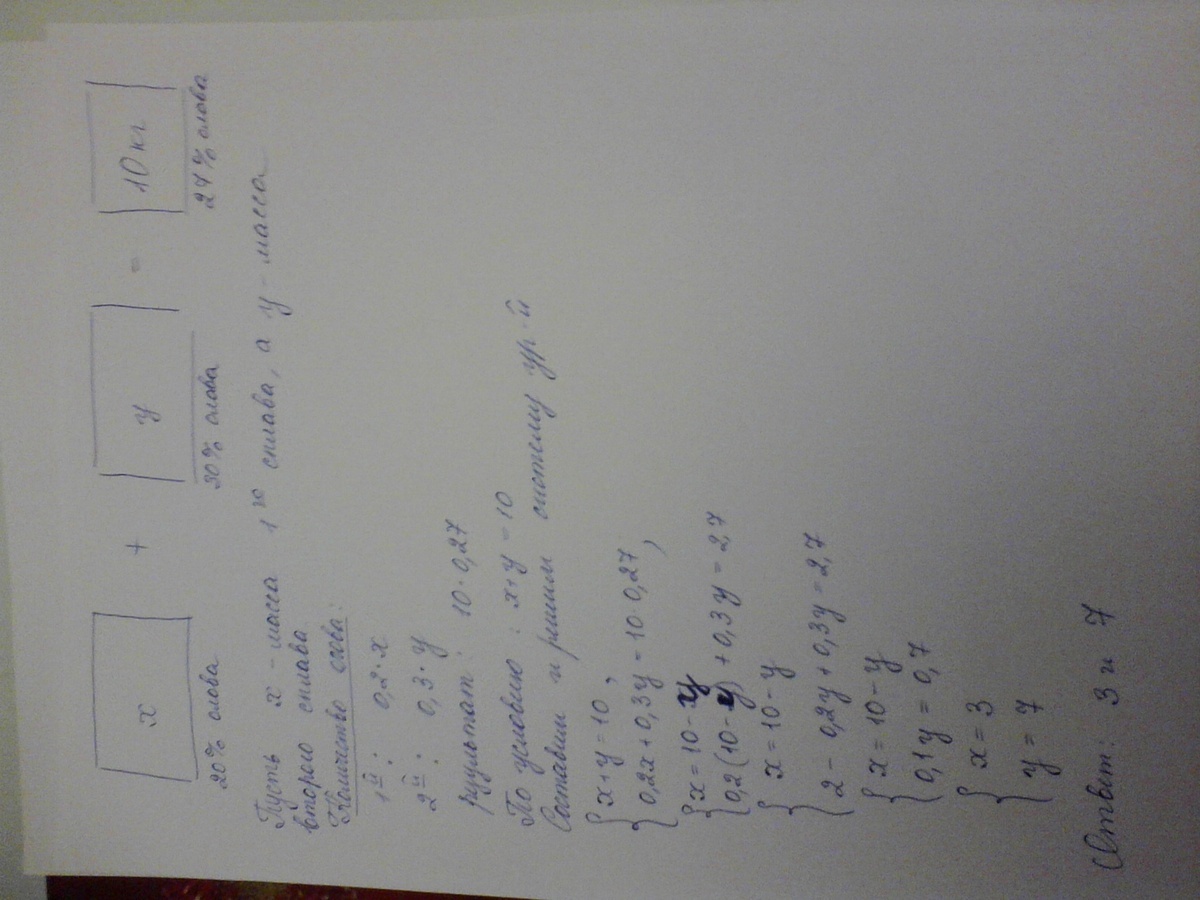 x + y = 10 кг
20% олова 30% олова 27% олова
Пусть x - масса 1го сплава, а y - масса
второго сплава
Количество олова:
1й: 0,2·x
2й: 0,3·y
результат: 10·0,27
По условию: x+y=10
Составим и решим систему ур-й
{ x+y=10,
0,2x+0,3y=10·0,27,
{ x=10-y
0,2(10-y)+0,3y=2,7
{ x=10-y
2-0,2y+0,3y=2,7
{ x=10-y
0,1y=0,7
{ x=3
y=7
Ответ: 3 и 7